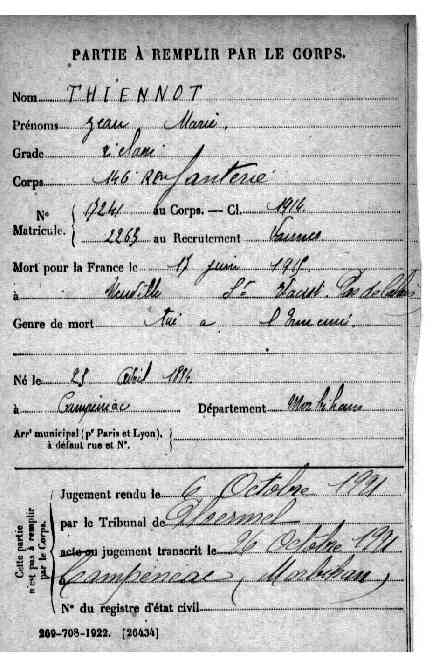 PARTIE À REMPLIR PAR LE CORPS.
Nom THIENNOT
Prénoms Jean Marie,
Grade 2e classe
Corps 146 Rgt Infanterie
No Matricule. { 17241 au Corps. — Cl. 1914
2263 au Recrutement Vannes
Mort pour la France le 17 juin 1915
à Neuville St Vaast. Pas de Calais
Genre de mort tué a l'ennemi
Né le avril 1894
à Campénéac Département Morbihan
Arrt municipal (pr Paris et Lyon), à défaut rue et No.
Cette partie n'est pas à remplir par le Corps.
Jugement rendu le 6 Octobre 1921
par le Tribunal de Ploermel
acte ou jugement transcrit le 26 octobre 1921
à Campénéac (Morbihan)
No du registre d'état civil
269-708-1922. [26434]